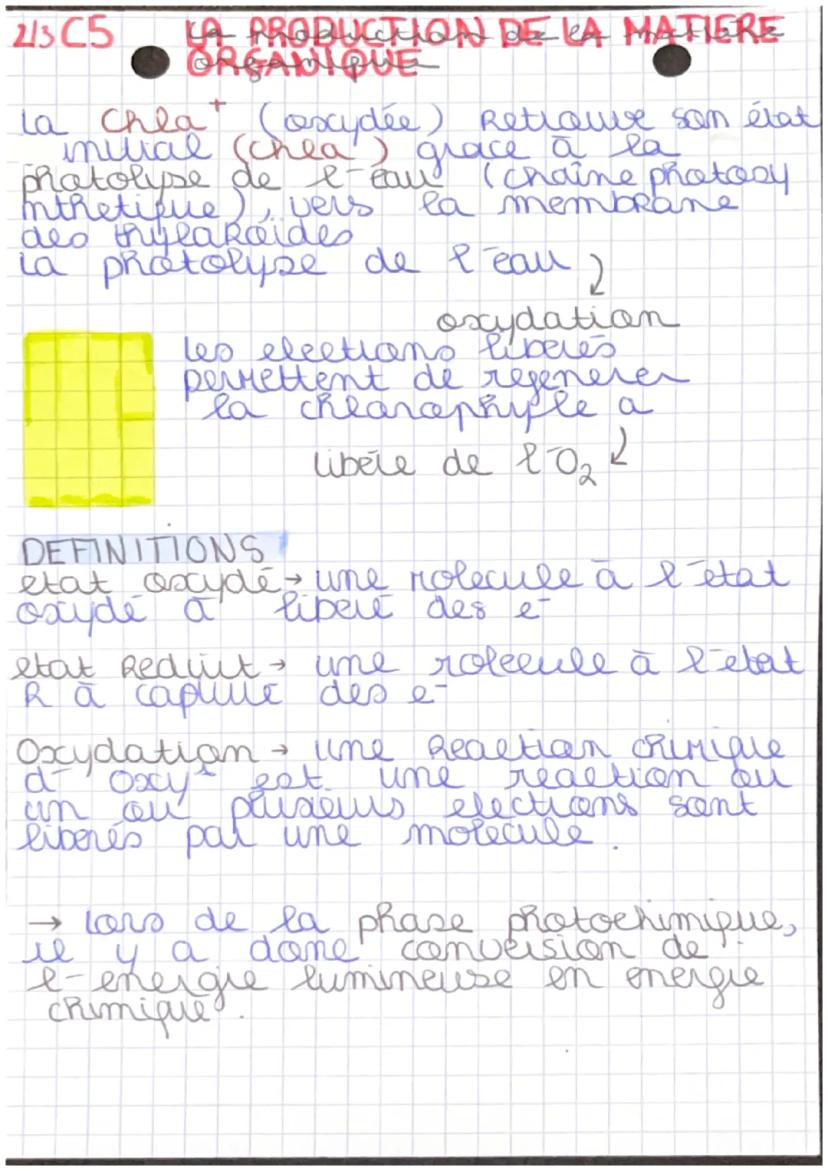 2/3 C5 LA PRODUCTION DE LA MATIERE
ORGANIQUE
La chla+ (oxydée) Retrouve son état
initial (chla) grace à la
photolyse de l'eau (chaîne photosy
nthetique), vers la membrane
des thylakoïdes
La photolyse de l'eau
oxydation
les electrons liberés
permettent de regenerer
la chlorophyle a
libère de l'O2
DEFINITIONS
etat oxydé → une molecule à l'etat
oxydé à liberé des e-
etat Reduit → une molecule à l'etat
R à capturé des e-
Oxydation → une Reaction chimique
d' oxy° est une reaction ou
un ou plusieurs electrons sont
liberés par une molecule.
→ lors de la phase photochimique,
il y a donc conversion de
l'energie lumineuse en energie
chimique.